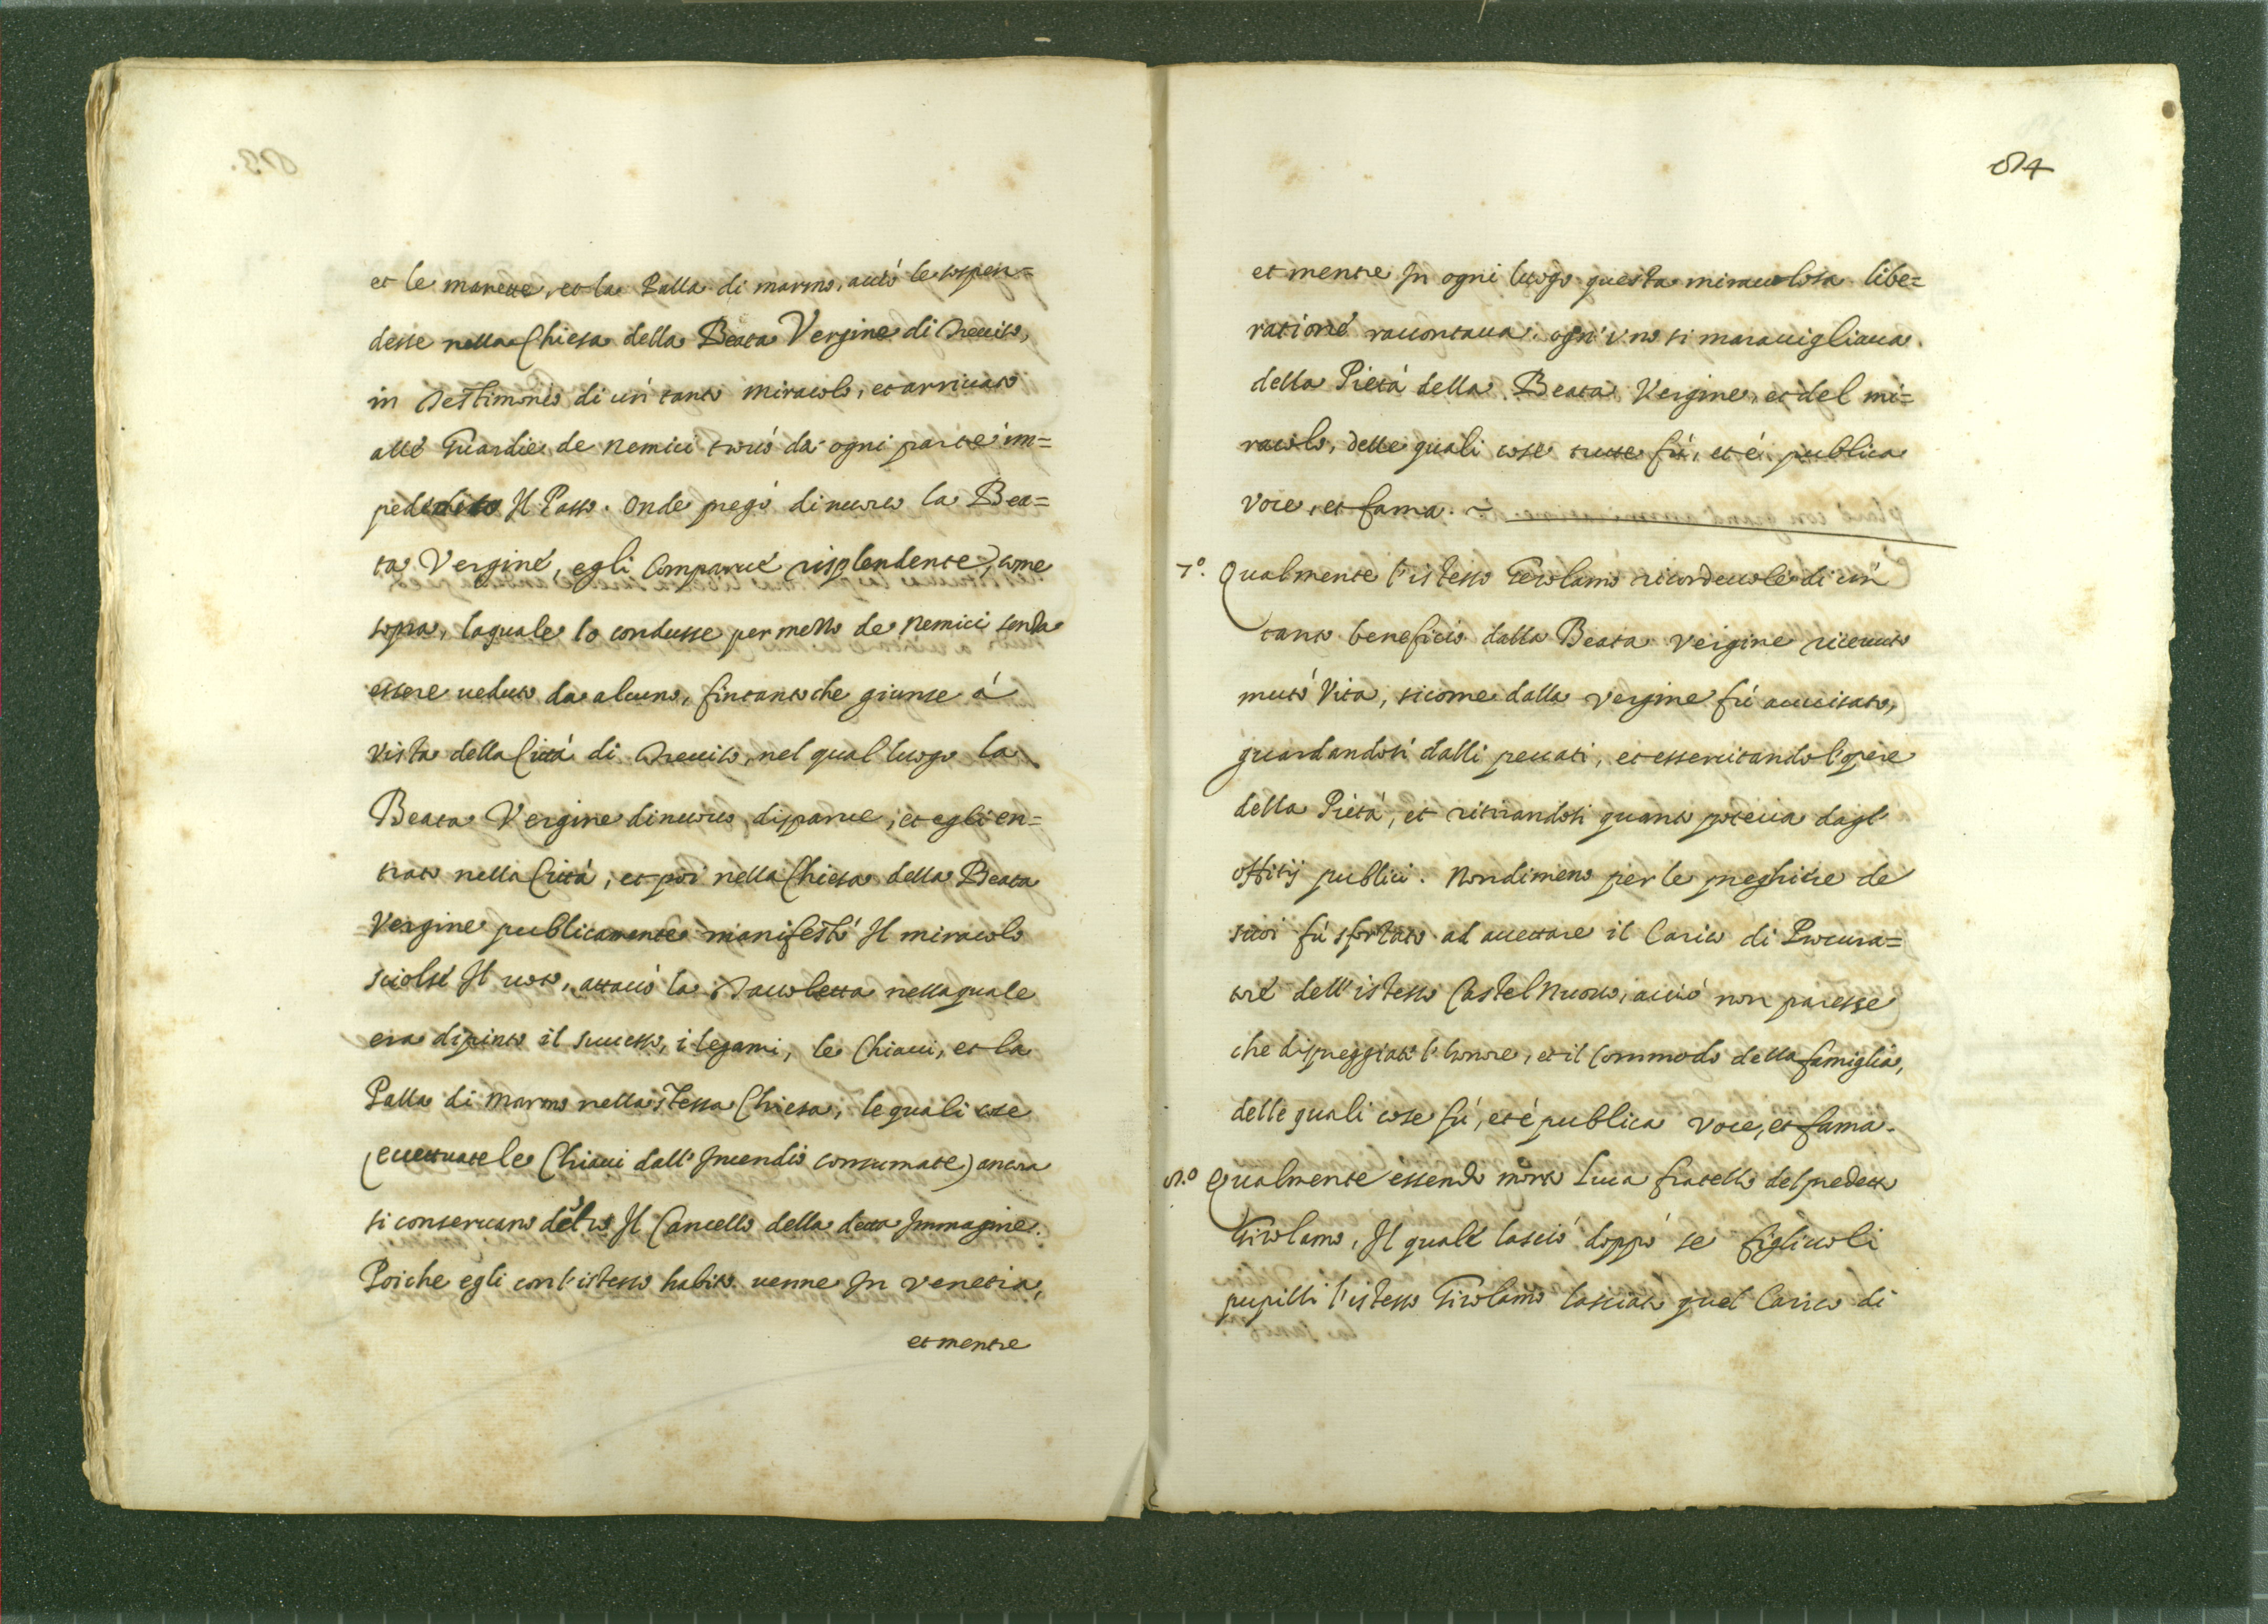 et le manette, et la Palla di marmo, acciò le sospen=
desse nella Chiesa della Beata Vergine di Treuiso,
in Testimonio di un tanto miracolo, et arriuato
alle Guardie de nemici trouò da ogni parte im=
pedito Il Passo. Onde pregò di nuouo la Bea=
ta Vergine, egli Comparue risplendente, come
sopra, laquale lo condusse per mezzo de nemici senza
essere ueduto da alcuno, fintanto che giunse à
Vista della Città di Treuiso, nel qual luogo la
Beata Vergine di nuouo disparue, et egli en=
trato nella Città, et poi nella Chiesa della Beata
Vergine publicamente manifestò Il miracolo
sciolse Il uoto, attaccò la Tauoletta nellaquale
era dipinto il successo, i legami, le Chiaui, et la
Palla di marmo nella stessa Chiesa, lequali cose
(eccettuate le Chiaui dall'Incendio consumate) ancora
si conseruano dietro Il Cancello della detta Immagine.
Poiche egli con l'istesso habito uenne In Venetia,
et mentre
84
et mentre In ogni luogo questa miracolosa libe=
ratione raccontaua, ogn'uno si marauigliaua
della Pietà della Beata Vergine, et del mi=
racolo, delle quali cose tutte fù, et è publica
voce, et fama. ~
7.º Qualmente l'istesso Gerolamo ricordeuole di un
tanto beneficio dalla Beata Vergine riceuuto
mutò Vita, sicome dalla Vergine fù auuisato,
guardandosi dalli peccati, et essercitando l'opere
della Pietà, et ritirandosi quanto poteua dagl'
offitij publici. Nondimeno per le preghiere de
suoi fù sforzato ad accettare il Carico di Procura=
tore dell'istesso Castel Nuouo, acciò non paresse
che dispreggiato l'honore, et il Commodo della famiglia,
delle quali cose fù, et è publica voce, et fama.
8.º Qualmente essendo morto Luca fratello del predetto
Girolamo, Il quale lasciò doppò se figliuoli
pupilli l'istesso Girolamo lasciato quel Carico di